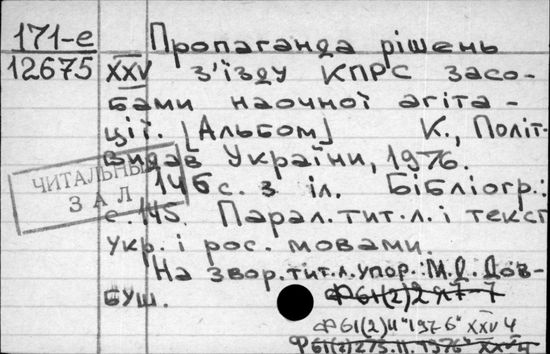 171-е
12675
Пропаганда рішень
XXV з'їзду КПРС засо-
бами наочної агіта-
ції. [Альбом] К., Політ-
видав України, 1976.
146 с. з іл. Бібліогр.:
с. 145. Парал. тит. л. і текст
укр. і рос. мовами.
На звор. тит. л. упор.: М.Д. Дов-
буш.
ЧИТАЛЬНЫЙ
ЗАЛ
Ф61(2)
Ф61(2)Ц"1976" XXV Ч
Ф61(2)275.11."1976" XXV Ч